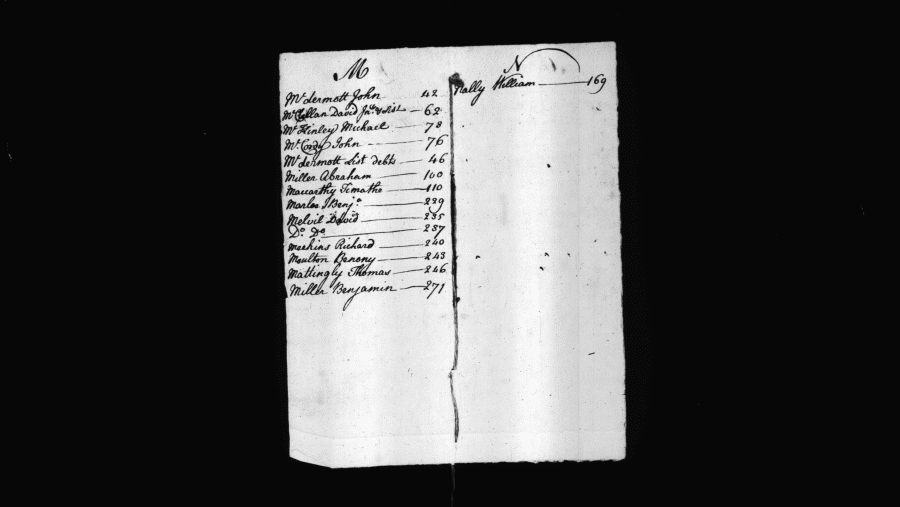 M
Mc dermott John 42
Mc Clellan David Jnr & List 62
Mc Finley Michael 78
Mc Cordy John 76
Mc dermott List debts 46
Miller Abraham 100
Maccarthy Timothe 110
Marlee J Benja 229
Melvil David 235
Do Do 237
Meekins Richard 240
Moulton Benony 243
Mattingly Thomas 246
Miller Benjamin 271
N
Nally William 169